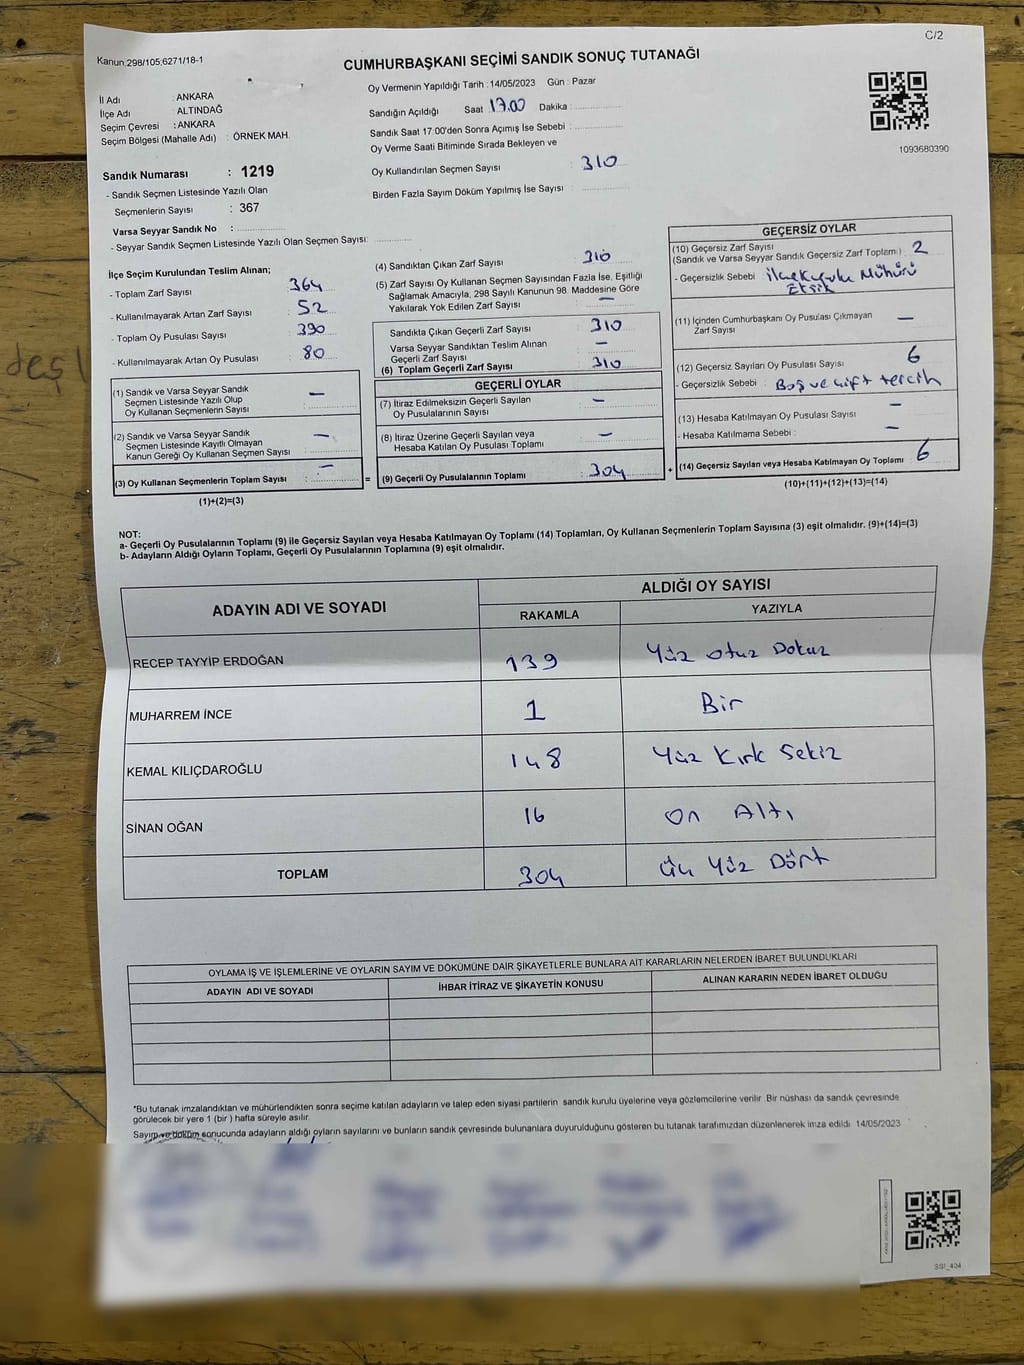 C/2
Kanun:298/105;6271/18-1
CUMHURBAŞKANI SEÇİMİ SANDIK SONUÇ TUTANAĞI
Oy Vermenin Yapıldığı Tarih : 14/05/2023 Gün : Pazar
İl Adı : ANKARA
İlçe Adı : ALTINDAĞ
Seçim Çevresi : ANKARA
Seçim Bölgesi (Mahalle Adı) : ÖRNEK MAH.
Sandığın Açıldığı Saat 17.00 Dakika :
Sandık Saat 17:00'den Sonra Açımış İse Sebebi :
Oy Verme Saati Bitiminde Sırada Bekleyen ve
Oy Kullandırılan Seçmen Sayısı : 310
Birden Fazla Sayım Döküm Yapılmış İse Sayısı :
1093680390
Sandık Numarası : 1219
- Sandık Seçmen Listesinde Yazılı Olan
Seçmenlerin Sayısı : 367
Varsa Seyyar Sandık No :
- Seyyar Sandık Seçmen Listesinde Yazılı Olan Seçmen Sayısı:
İlçe Seçim Kurulundan Teslim Alınan;
- Toplam Zarf Sayısı : 364
- Kullanılmayarak Artan Zarf Sayısı : 52
- Toplam Oy Pusulası Sayısı : 390
- Kullanılmayarak Artan Oy Pusulası : 80
(1) Sandık ve Varsa Seyyar Sandık
Seçmen Listesinde Yazılı Olup
Oy Kullanan Seçmenlerin Sayısı : —
(2) Sandık ve Varsa Seyyar Sandık
Seçmen Listesinde Kayıtlı Olmayan
Kanun Gereği Oy Kullanan Seçmen Sayısı : —
(3) Oy Kullanan Seçmenlerin Toplam Sayısı : —
(1)+(2)=(3)
(4) Sandıktan Çıkan Zarf Sayısı : 310
(5) Zarf Sayısı Oy Kullanan Seçmen Sayısından Fazla İse, Eşitliği
Sağlamak Amacıyla, 298 Sayılı Kanunun 98. Maddesine Göre
Yakılarak Yok Edilen Zarf Sayısı : —
Sandıkta Çıkan Geçerli Zarf Sayısı : 310
Varsa Seyyar Sandıktan Teslim Alınan
Geçerli Zarf Sayısı : —
(6) Toplam Geçerli Zarf Sayısı : 310
GEÇERLİ OYLAR
(7) İtiraz Edilmeksizin Geçerli Sayılan
Oy Pusulalarının Sayısı : —
(8) İtiraz Üzerine Geçerli Sayılan veya
Hesaba Katılan Oy Pusulası Toplamı : —
= (9) Geçerli Oy Pusulalarının Toplamı : 304
GEÇERSİZ OYLAR
(10) Geçersiz Zarf Sayısı
(Sandık ve Varsa Seyyar Sandık Geçersiz Zarf Toplamı) : 2
- Geçersizlik Sebebi : İlçe Kurulu Mührü
Eksik
(11) İçinden Cumhurbaşkanı Oy Pusulası Çıkmayan
Zarf Sayısı : —
(12) Geçersiz Sayılan Oy Pusulası Sayısı : 6
- Geçersizlik Sebebi : Boş ve çift tercih
(13) Hesaba Katılmayan Oy Pusulası Sayısı : —
- Hesaba Katılmama Sebebi : —
+ (14) Geçersiz Sayılan veya Hesaba Katılmayan Oy Toplamı : 6
(10)+(11)+(12)+(13)=(14)
NOT:
a- Geçerli Oy Pusulalarının Toplamı (9) ile Geçersiz Sayılan veya Hesaba Katılmayan Oy Toplamı (14) Toplamları, Oy Kullanan Seçmenlerin Toplam Sayısına (3) eşit olmalıdır. (9)+(14)=(3)
b- Adayların Aldığı Oyların Toplamı, Geçerli Oy Pusulalarının Toplamına (9) eşit olmalıdır.
ADAYIN ADI VE SOYADI ALDIĞI OY SAYISI
RAKAMLA YAZIYLA
RECEP TAYYİP ERDOĞAN 139 Yüz otuz Dokuz
MUHARREM İNCE 1 Bir
KEMAL KILIÇDAROĞLU 148 Yüz Kırk Sekiz
SİNAN OĞAN 16 On Altı
TOPLAM 304 Üç Yüz Dört
OYLAMA İŞ VE İŞLEMLERİNE VE OYLARIN SAYIM VE DÖKÜMÜNE DAİR ŞİKAYETLERLE BUNLARA AİT KARARLARIN NELERDEN İBARET BULUNDUKLARI
ADAYIN ADI VE SOYADI İHBAR İTİRAZ VE ŞİKAYETİN KONUSU ALINAN KARARIN NEDEN İBARET OLDUĞU
*Bu tutanak imzalandıktan ve mühürlendikten sonra seçime katılan adayların ve talep eden siyasi partilerin sandık kurulu üyelerine veya gözlemcilerine verilir. Bir nüshası da sandık çevresinde
görülecek bir yere 1 (bir ) hafta süreyle asılır.
Sayım ve döküm sonucunda adayların aldığı oyların sayılarını ve bunların sandık çevresinde bulunanlara duyurulduğunu gösteren bu tutanak tarafımızdan düzenlenerek imza edildi 14/05/2023